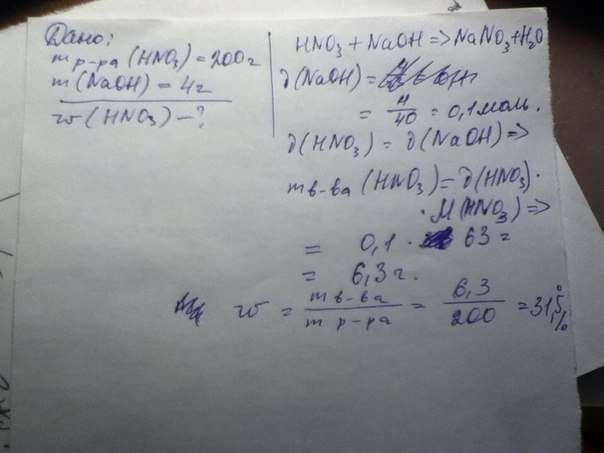 Дано:
m р-ра (HNO₃) = 200г
m (NaOH) = 4г
w (HNO₃) - ?
HNO₃ + NaOH => NaNO₃ + H₂O
∂(NaOH) =
= 4/40 = 0,1 моль.
∂(HNO₃) = ∂(NaOH) =>
m в-ва (HNO₃) = ∂(HNO₃) ·
· M(HNO₃) =>
= 0,1 · 63 =
= 6,3 г.
w = m в-ва / m р-ра = 6,3 / 200 = 31,5%